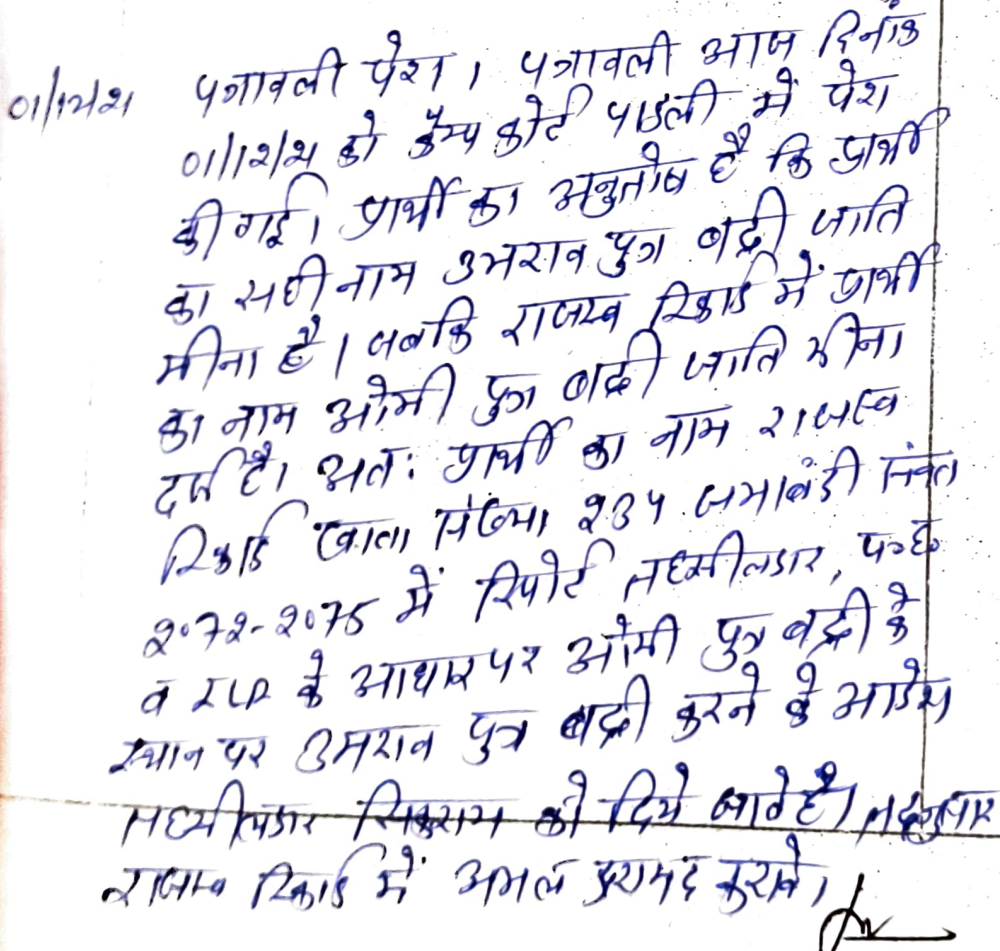 01/12/21 पत्रावली पेश। पत्रावली आज दिनांक
01/12/21 को कैम्प कोर्ट पाडली में पेश
की गई। प्रार्थी का अनुतोष है कि प्रार्थी
का सही नाम उमराव पुत्र बद्री जाति
मीना है। जबकि राजस्व रिकार्ड में प्रार्थी
का नाम ओमी पुत्र बद्री जाति मीना
दर्ज है। अतः प्रार्थी का नाम राजस्व
रिकार्ड खाता संख्या 234 जमाबंदी संवत
2072-2075 में रिपोर्ट तहसीलदार,
व के आधार पर ओमी पुत्र बद्री के
स्थान पर उमराव पुत्र बद्री करने के आदेश
तहसीलदार सिकराय को दिये जाते है। तदनुसार
राजस्व रिकार्ड में अमल दरामद करावे।